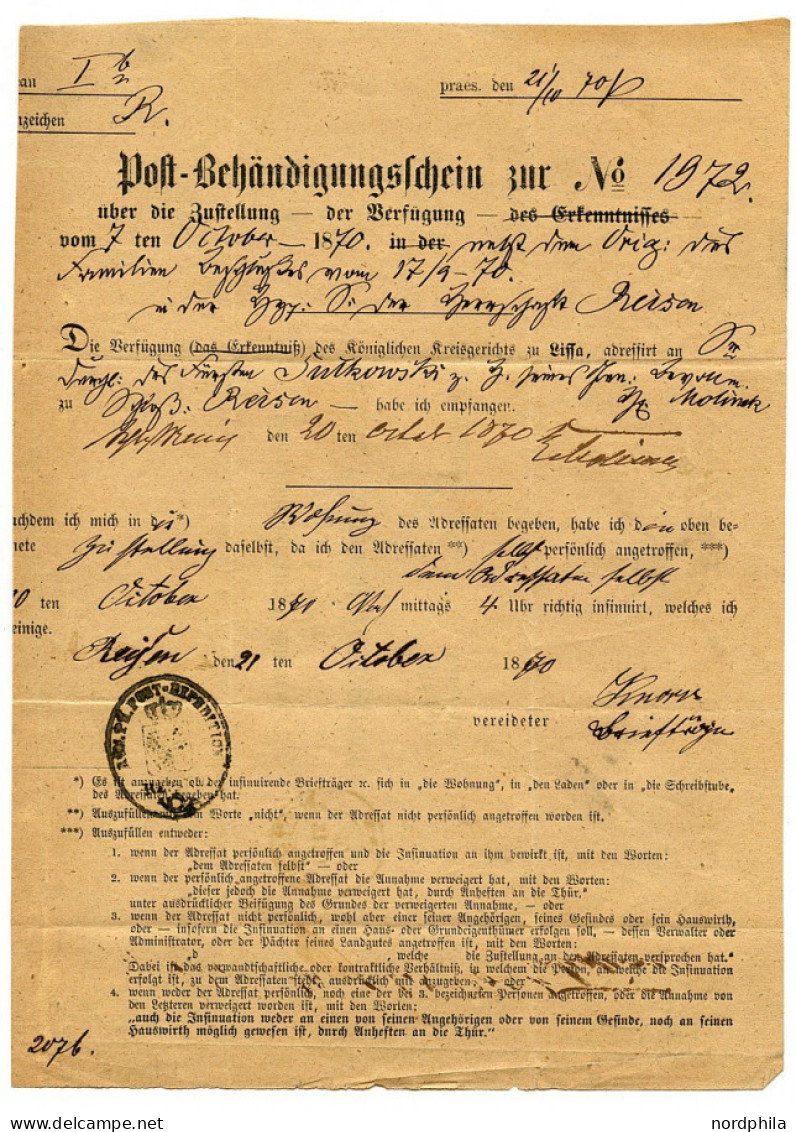 eau I b
nzeichen R.
praes. den 21/10 70
Post-Behändigungsschein zur No 1972.
über die Zustellung — der Verfügung — des Erkenntnisses
vom 7 ten October — 1870. in der nebst dem Orig: des
Familien Beschlusses vom 17/9-70.
in der Hyp: S: der Herrschaft Reisen
Die Verfügung (das Erkenntniß) des Königlichen Kreisgerichts zu Lissa, adressirt an Sr
Durchl: des Fürsten Sulkowski z. H. seines Gen: Bevollm.
zu Schloß: Reisen — habe ich empfangen. H. Molinek
den 20 ten Octob 1870
achdem ich mich in die *) Wohnung des Adressaten begeben, habe ich den oben be-
nete Zustellung daselbst, da ich den Adressaten **) selbst persönlich angetroffen, ***)
dem Adressaten selbst
0 ten October 1870 Nach mittags 4 Uhr richtig insinuirt, welches ich
einige.
Reisen den 21 ten October 1870
Knorr
vereideter Briefträger
KÖN. PR. POST-EXPEDITION
*) Es ist anzugeben ob der insinuirende Briefträger ꝛc. sich in „die Wohnung", in „den Laden" oder in „die Schreibstube„
des Adressaten begeben hat.
**) Auszufüllen mit dem Worte „nicht", wenn der Adressat nicht persönlich angetroffen worden ist.
***) Auszufüllen entweder:
1. wenn der Adressat persönlich angetroffen und die Insinuation an ihm bewirkt ist, mit den Worten:
„dem Adressaten selbst" — oder
2. wenn der persönlich angetroffene Adressat die Annahme verweigert hat, mit den Worten:
„dieser jedoch die Annahme verweigert hat, durch Anheften an die Thür."
unter ausdrücklicher Beifügung des Grundes der verweigerten Annahme, — oder
3. wenn der Adressat nicht persönlich, wohl aber einer seiner Angehörigen, seines Gesindes oder sein Hauswirth,
oder — insofern die Insinuation an einen Haus- oder Grundeigenthümer erfolgen soll, — dessen Verwalter oder
Administrator, oder der Pächter seines Landgutes angetroffen ist, mit den Worten:
„d , welche die Zustellung an den Adressaten versprochen hat."
Dabei ist das verwandtschaftliche oder kontraktliche Verhältniß, in welchem die Person, an welche die Insinuation
erfolgt ist, zu dem Adressaten steht, ausdrücklich mit anzugeben, — oder —
4. wenn weder der Adressat persönlich, noch eine der bei 3. bezeichneten Personen angetroffen, oder die Annahme von
den Letzteren verweigert worden ist, mit den Worten:
„auch die Insinuation weder an einen von seinen Angehörigen oder von seinem Gesinde, noch an seinen
Hauswirth möglich gewesen ist, durch Anheften an die Thür."
2076.
nordphila